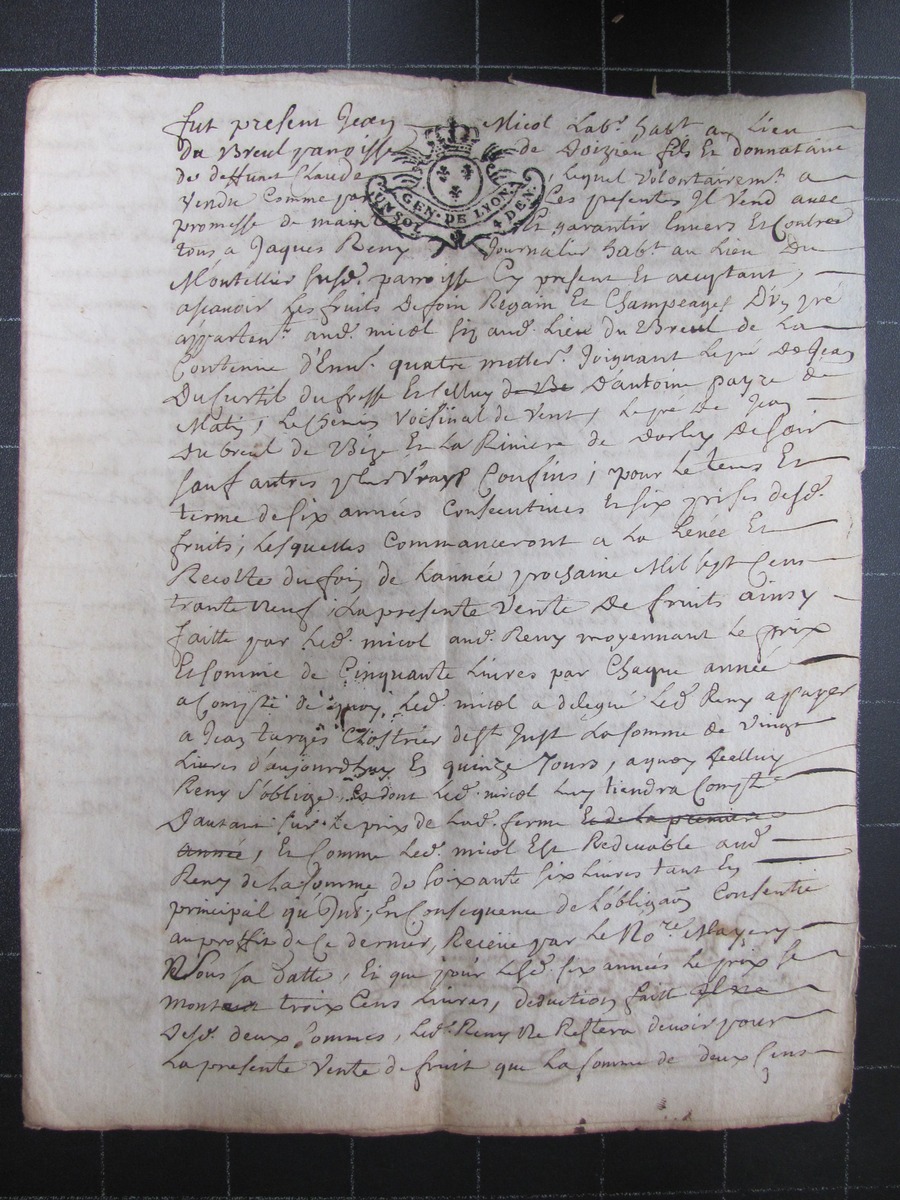 fut present Jean Micol Labr. habt. au Lieu
du Breul parroisse de Doizieu fils Et donnataire
de deffunt Claude, lequel volontairemt. a
vendu Comme par Les presentes Il vend avec
GEN. DE LYON.
UN SOL 4 DEN.
promesse de main Et garantir Envers Et Contre
tous a Jaques Remy Journalier habt. au Lieu Du
Montellier susd. parroisse Cy present Et aceptant,
ascavoir Les fruits De foin Regain Et Champeages D'un pré
appartent. aud. micol siz aud. Lieu du Breul de La
Contenue d'Envr. quatre metter. Joignant Le pré De Jean
Du Curtil du fresse Et Celluy d'antoine payre de
Matin, Le Chemin voisinal de vent, Le pré De Jean
Du breul de Bize Et La Riviere de Dorley De soir
sauf autres plus vrays Confins; pour Le tems Et
terme de six années Consecutives Et six prises desd.
fruits, Lesquelles Commanceront a La Levée Et
Recolte du foin de Lannée prochaine Mil sept Cens
trante neuf; La presente Vente De fruits ainsy
faitte par Led. micol aud. Remy moyennant Le prix
Et somme de Cinquante Livres par Chaque année
a Compte de quoy, Led. micol a delegué Led. Remy a payer
a Jean Turges de St. Just La somme de vingt
Livres d'aujourdhuy En quinze Jours, a quoy
Remy s'oblige, Et dont Led. micol Luy tiendra Compte
Dautant sur Le prix de Lad. ferme Et de La premiere
année, Et Comme Led. micol Est Redevable aud.
Remy de La somme de soixante six Livres tant En
principal qu'Int., En Consequence de L'obligaon Consentie
au proffit de Ce dernier, Receüe par Le Nore.
sous sa datte, Et que pour Lesd. six années Le prix se
monte a troix Cens Livres, deduction faitte
Desd. deux sommes, Led. Remy Ne Restera devoir pour
La presente Vente de fruit que La somme de deux Cens